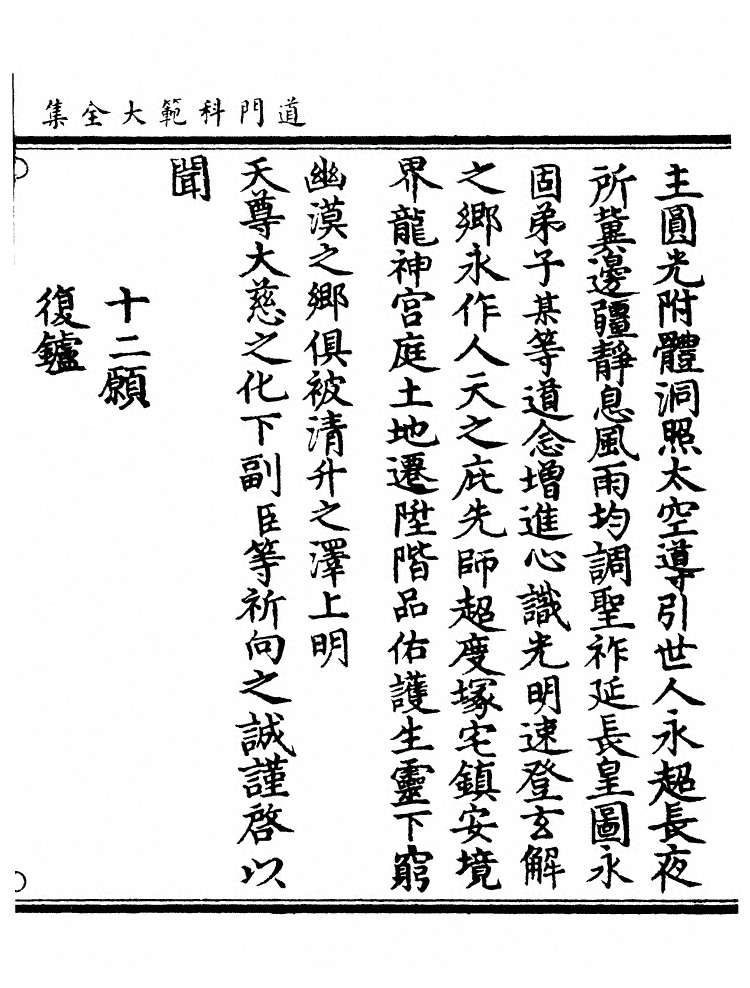 道門科範大全集
主圓光附體洞照太空導引世人永超長夜
所冀邊疆靜息風雨均調聖祚延長皇圖永
固弟子某等道念增進心識光明速登玄解
之鄉永作人天之庇先師超度塚宅鎮安境
界龍神宮庭土地遷陞階品佑護生靈下窮
幽漠之鄉俱被清升之澤上明
天尊大慈之化下副臣等祈向之誠謹啓以
聞
十二願
復鑪